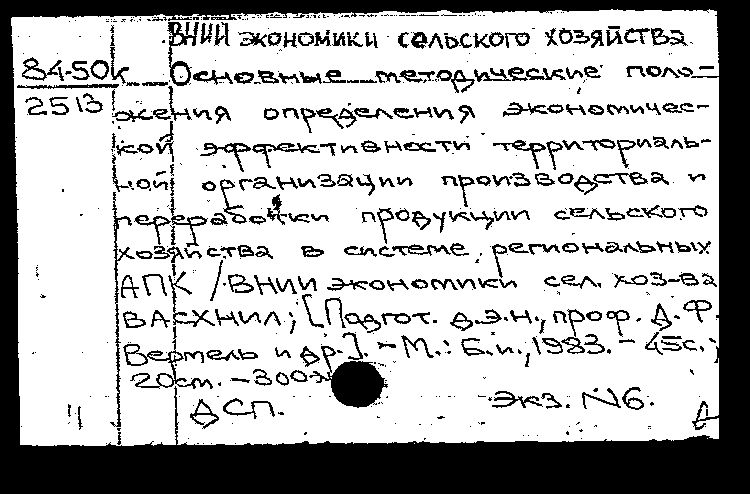 ВНИИ экономики сельского хозяйства
84-50к Основные методические поло-
2513 жения определения экономичес-
кой эффективности территориаль-
ной организации производства и
переработки продукции сельского
хозяйства в системе региональных
АПК / ВНИИ экономики сел. хоз-ва
ВАСХНИЛ; [Подгот. д.э.н., проф. Д.Ф.
Вермель и др.]. - М.: Б.и., 1983. - 45с.;
20см. - 300э
ДСП. Экз. N6.